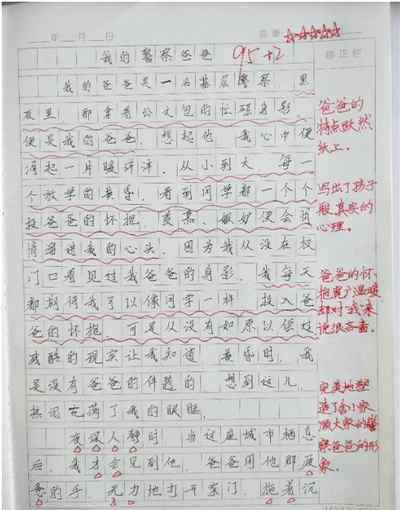 年 月 日
95+2
我的警察爸爸
我的爸爸是一名基层警察 黑
夜里 那拿着公文包的忙碌身影
便是我的爸爸 想起他 我心中便
荡起一片暖洋洋。从小到大 每一
个放学的黄昏，看到同学都一个个
投爸爸的怀抱，羡慕、嫉妒便会
涌进我的心头。因为我从没在校
门口看见过我爸爸的身影。我每天
都期待我可以像同学一样 投入爸
爸的怀抱。可是从没有如愿以偿过
残酷的现实让我知道 黄昏时，我
是没有爸爸的伴随的 想到这儿，
热泪充满了我的眼眶
夜深人静时 当这座城市栖息
后，我才会见到他。爸爸用他那疲
惫的手，无力地打开家门，拖着沉
爸爸的
特点跃然
纸上。
写出了孩子
般真实的
心理。
爸爸的怀
抱宽广温暖
却对我来
说很吝啬。
完美地塑
造了舍小家
顾大家的警
察爸爸的形
象。